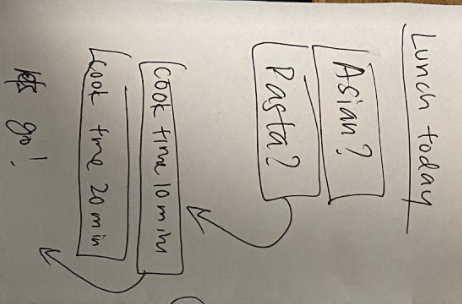 Lunch today
Asian?
Pasta?
Cook time 10 min
Cook time 20 min
lets go!